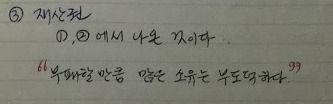 ③ 재산권
①,②에서 나온 것이다.
“부패할 만큼 많은 소유는 부도덕하다.”